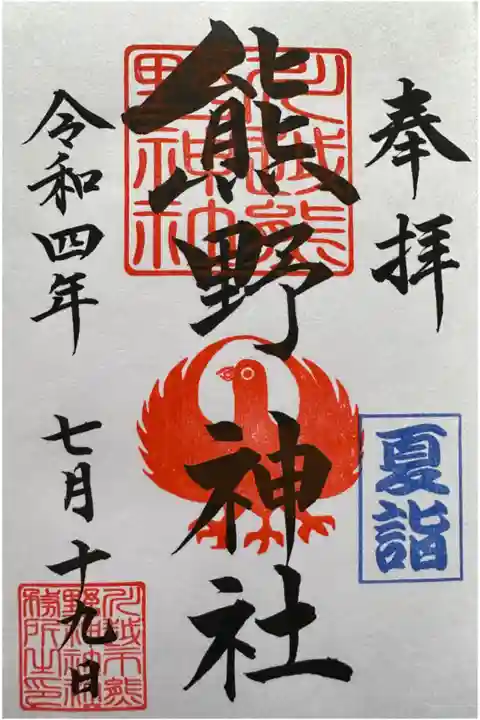 奉拝
夏詣
熊野神社
川越熊野神社
令和四年
七月十九日
川越市熊野神社務所之印